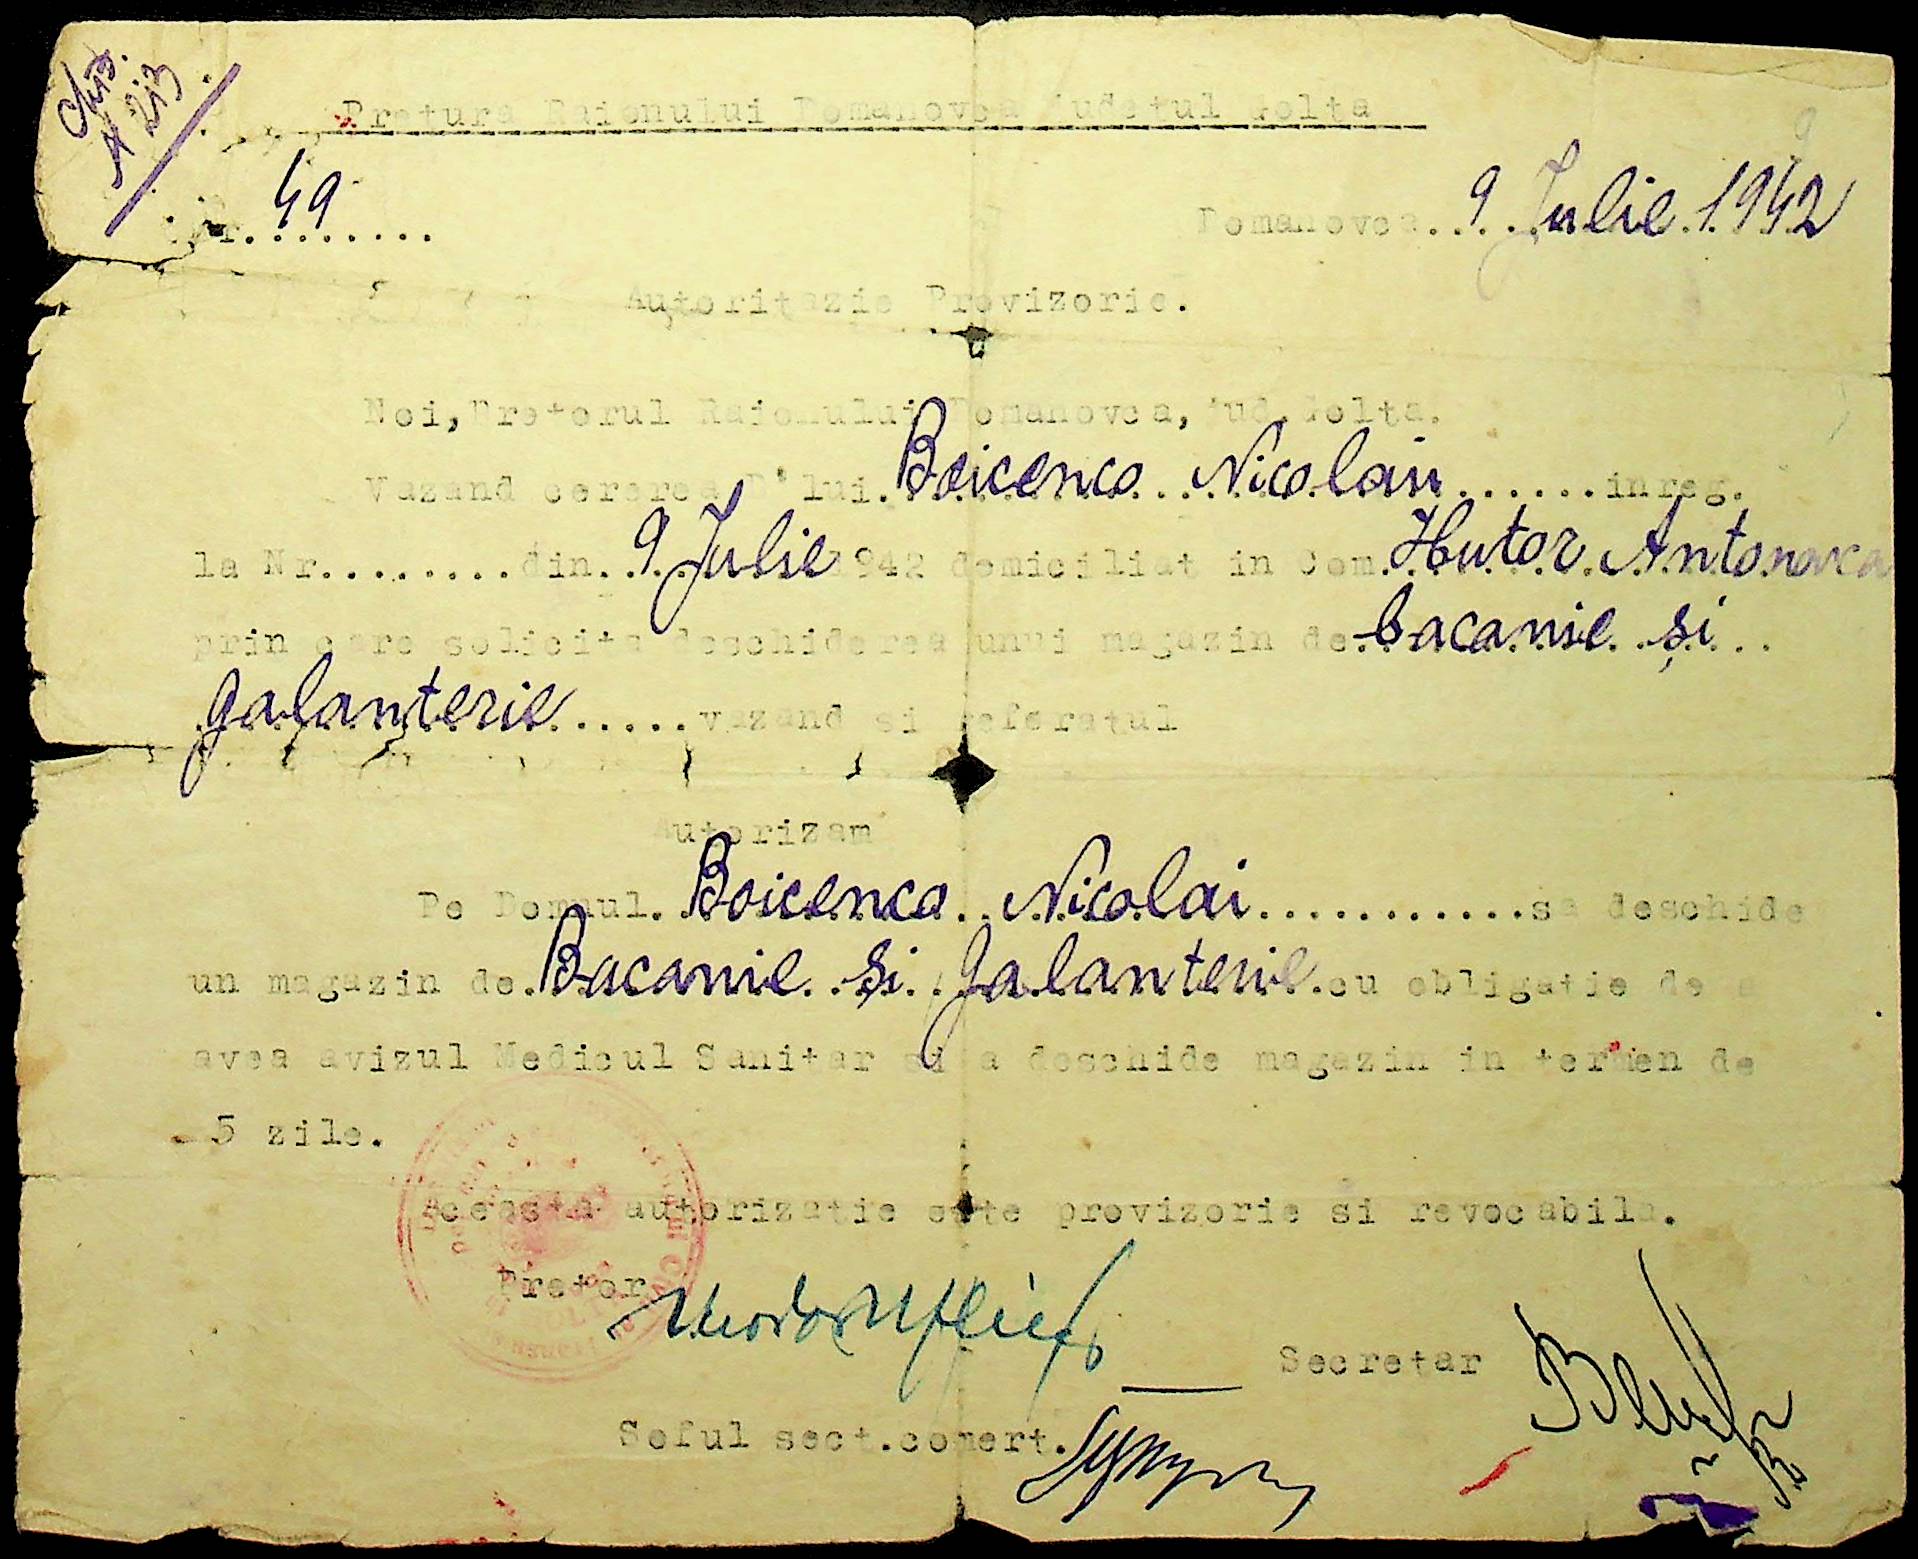 Chit.
N 213
Pretura Raionului Domanovca judetul Golta
Nr. 49 ........
Domanovca.. 9 Iulie 1942
Autoritazie Provizorie.
Noi, Pretorul Raionului Domanovca, jud. Golta.
Vazand cererea D'lui. Boicenco Nicolai ......inreg.
la Nr.........din. 9 Iulie 1942 domiciliat in Com. Hutor Antonovca
prin care solicita deschiderea unui magazin de. bacanie și ..
galanterie ......vazand si referatul
Autorizam
Pe Domnul. Boicenco Nicolai ............sa deschide
un magazin de. Bacanie și Galanterie .cu obligatie de a
avea avizul Medicul Sanitar si a deschide magazin in termen de
5 zile.
Aceasta autorizatie este provizorie si revocabila.
Pretor
Secretar
Seful sect.comert.